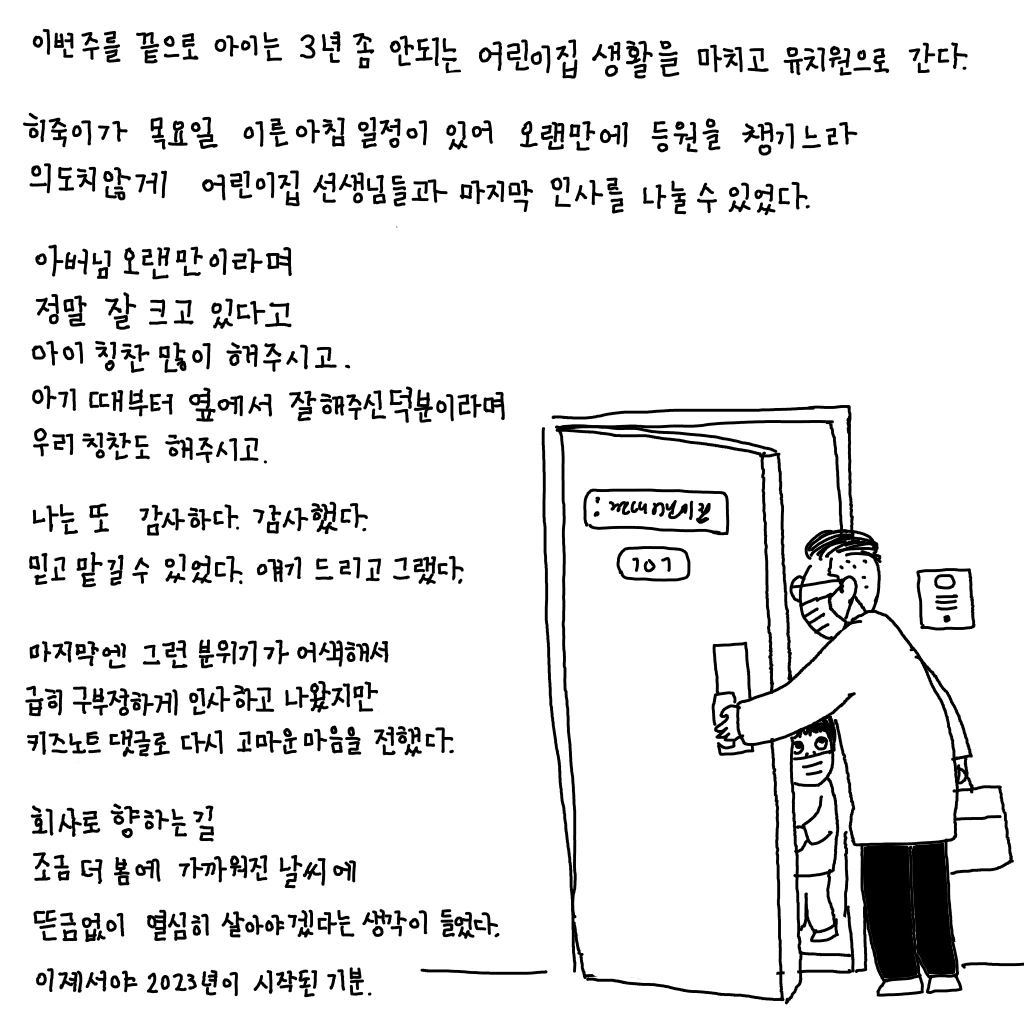 이번주를 끝으로 아이는 3년 좀 안되는 어린이집 생활을 마치고 유치원으로 간다.
히죽이가 목요일 이른아침 일정이 있어 오랜만에 등원을 챙기느라
의도치않게 어린이집 선생님들과 마지막 인사를 나눌 수 있었다.
아버님 오랜만이라며
정말 잘 크고 있다고
아이 칭찬 많이 해주시고.
아기 때부터 옆에서 잘해주신덕분이라며
우리 칭찬도 해주시고.
나는 또 감사하다. 감사했다.
믿고 맡길 수 있었다. 얘기 드리고 그랬다.
마지막엔 그런 분위기가 어색해서
급히 구부정하게 인사하고 나왔지만
키즈노트 댓글로 다시 고마운마음을 전했다.
회사로 향하는길
조금 더 봄에 가까워진 날씨에
뜬금없이 열심히 살아야겠다는 생각이 들었다.
이제서야 2023년이 시작된 기분.
101